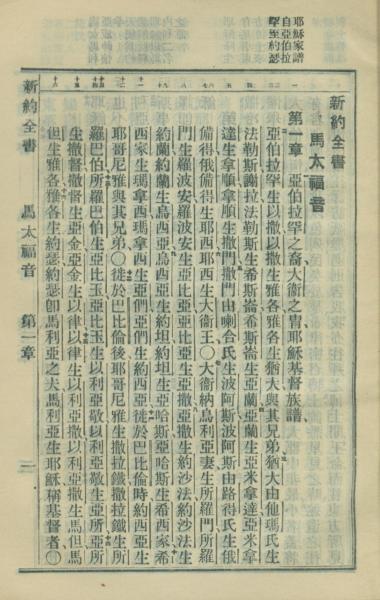 耶穌家譜
自亞伯拉
罕至約瑟
新約全書
馬太福音
第一章 亞伯拉罕之裔大衞之胄耶穌基督族譜
亞伯拉罕生以撒以撒生雅各雅各生猶大與其兄弟猶大由他瑪氏生
法勒斯謝拉法勒斯生希斯崙希斯崙生亞蘭亞蘭生亞米拿達亞米拿
達生拿順拿順生撒門撒門由喇合氏生波阿斯波阿斯由路得氏生俄
備得俄備得生耶西耶西生大衞王〇大衞納烏利亞妻生所羅門所羅
門生羅波安羅波安生亞比亞亞比亞生亞撒亞撒生約沙法約沙法生
約蘭約蘭生烏西亞烏西亞生約坦約坦生亞哈斯亞哈斯生希西家希
西家生瑪拿西瑪拿西生亞們亞們生約西亞徙於巴比倫時約西亞生
耶哥尼雅與其兄弟〇徙於巴比倫後耶哥尼雅生撒拉鐵撒拉鐵生所
羅巴伯所羅巴伯生亞比玉亞比玉生以利亞敬以利亞敬生亞所亞所
生撒督撒督生亞金亞金生以律以律生以利亞撒以利亞撒生馬但馬
但生雅各雅各生約瑟約瑟卽馬利亞之夫馬利亞生耶穌稱基督者〇
新約全書 馬太福音 第一章 一